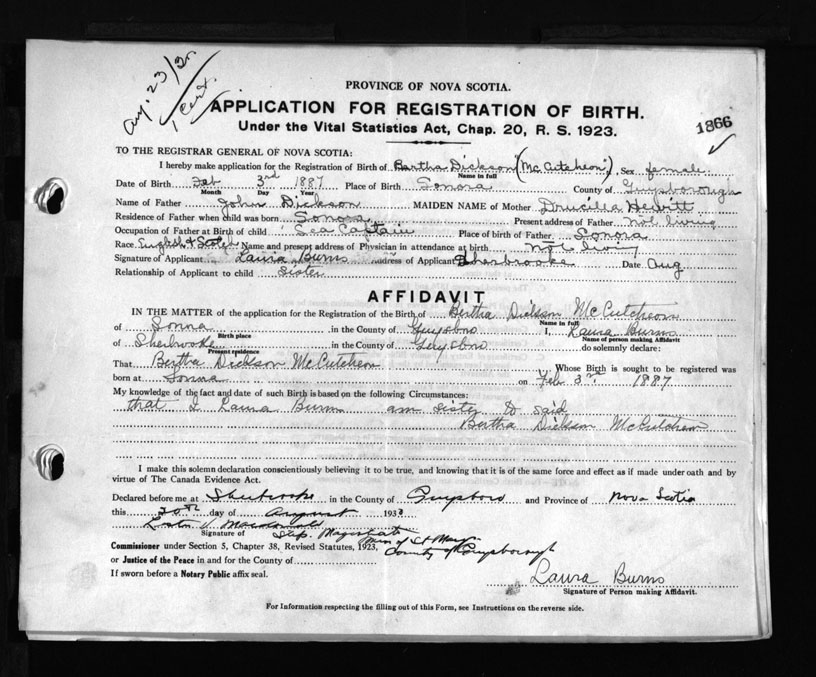 Aug. 23/32
1 Cert.
PROVINCE OF NOVA SCOTIA.
APPLICATION FOR REGISTRATION OF BIRTH.
Under the Vital Statistics Act, Chap. 20, R. S. 1923.
1866
TO THE REGISTRAR GENERAL OF NOVA SCOTIA:
I hereby make application for the Registration of Birth of Bertha Dickson (McCutcheon), Sex female
Name in full
Date of Birth Feb 3rd 1887 Place of Birth Sonora County of Guysborough
Month Day Year
Name of Father John Dickson MAIDEN NAME of Mother Drucilla Hewitt
Residence of Father when child was born Sonora Present address of Father Not living
Occupation of Father at Birth of child Sea Captain Place of birth of Father Sonora
Race English & Scotch Name and present address of Physician in attendance at birth Not living
Signature of Applicant Laura Burns Address of Applicant Sherbrooke Date Aug
Relationship of Applicant to child Sister
AFFIDAVIT
IN THE MATTER of the application for the Registration of the Birth of Bertha Dickson McCutcheon
Name in full
of Sonora in the County of Guysboro I, Laura Burns
Birth place Name of person making Affidavit
of Sherbrooke in the County of Guysboro do solemnly declare:
Present residence
That Bertha Dickson McCutcheon Whose Birth is sought to be registered was
born at Sonora on Feb 3rd 1887
My knowledge of the fact and date of such Birth is based on the following Circumstances:
that I Laura Burns am sister to said
Bertha Dickson McCutcheon
I make this solemn declaration conscientiously believing it to be true, and knowing that it is of the same force and effect as if made under oath and by
virtue of The Canada Evidence Act.
Declared before me at Sherbrooke in the County of Guysboro and Province of Nova Scotia
this 20th day of August 193
Macdonald
Signature of Stip. Magistrate
Mun of St Mary
Commissioner under Section 5, Chapter 38, Revised Statutes, 1923, County of Guysborough
or Justice of the Peace in and for the County of
If sworn before a Notary Public affix seal.
Laura Burns
Signature of Person making Affidavit.
For Information respecting the filling out of this Form, see Instructions on the reverse side.